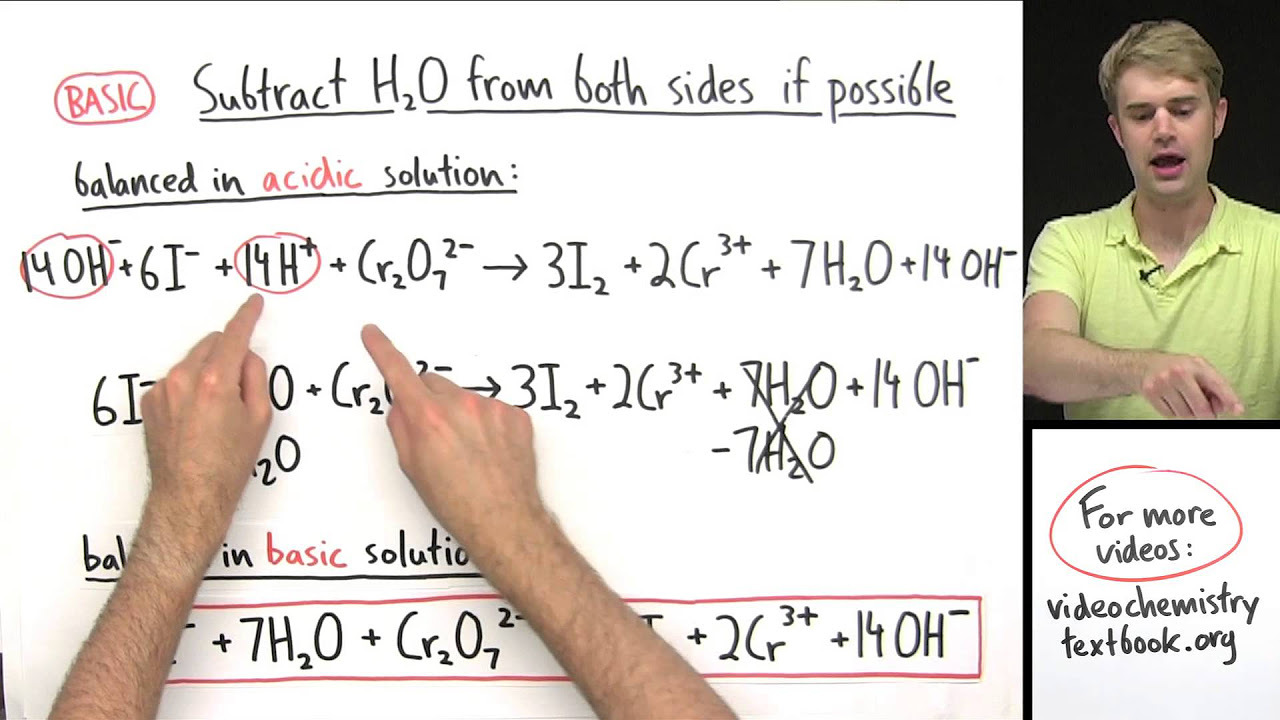 BASIC Subtract H₂O from both sides if possible
balanced in acidic solution:
14 OH⁻ + 6I⁻ + 14H⁺ + Cr₂O₇²⁻ → 3I₂ + 2Cr³⁺ + 7H₂O + 14 OH⁻
6I⁻ O + Cr₂O ²⁻ → 3I₂ + 2Cr³⁺ + 7H₂O + 14 OH⁻
₂O - 7H₂O
in basic
⁻ + 7H₂O + Cr₂O₇²⁻ + 2Cr³⁺ + 14 OH⁻
For more
videos:
videochemistry
textbook.org